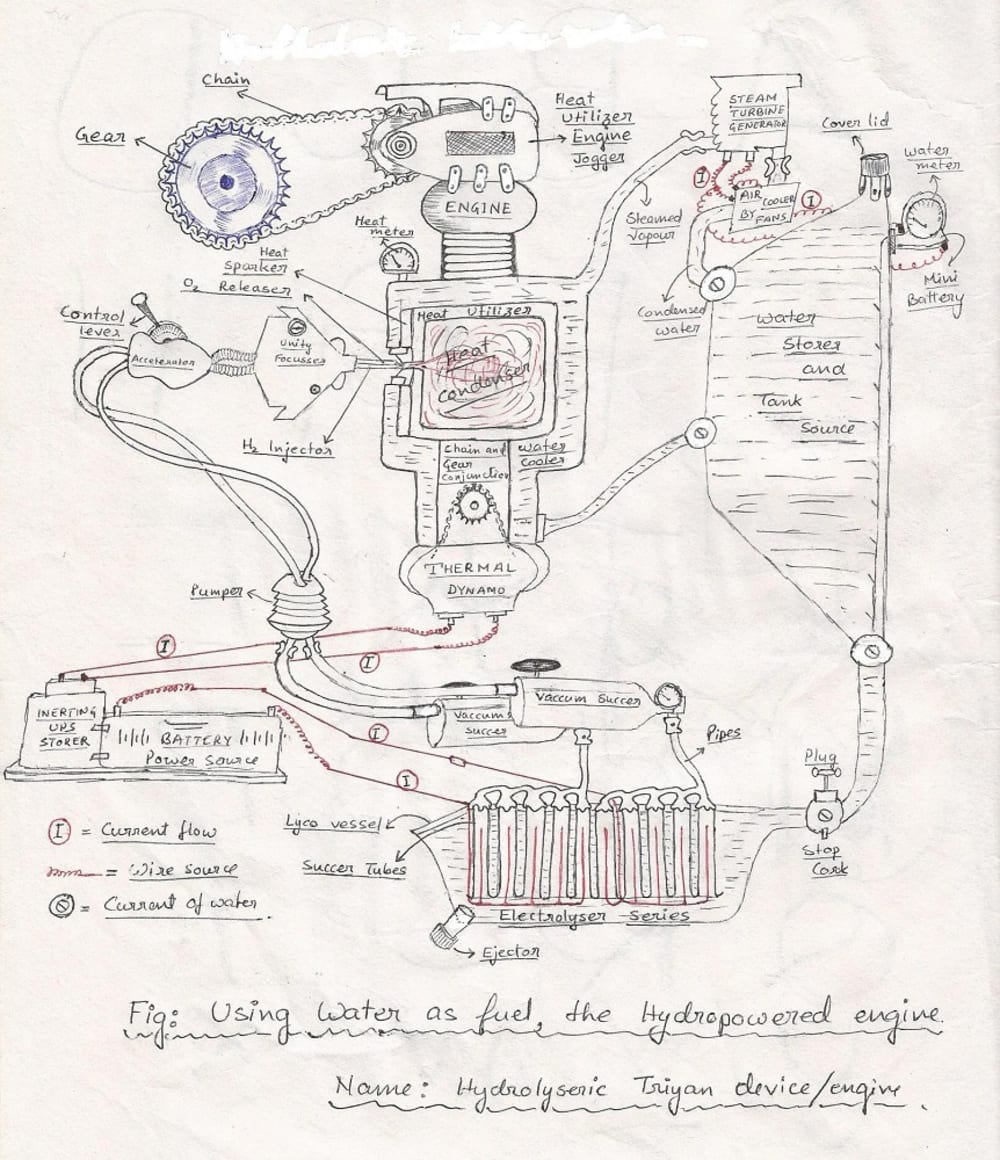 Chain
Gear
Heat
Utilizer
Engine
Jogger
STEAM
TURBINE
GENERATOR
Cover lid
water
meter
ENGINE
Heat
meter
Heat
Sparker
O2 Releaser
Steamed
Vapour
I
AIR COOLER
BY FANS
I
Mini
Battery
Condensed
water
Control
lever
Accelerator
Unity
Focusser
Heat Utilizer
Heat
Condenser
water
Storer
and
Tank
Source
H2 Injector
Chain and
Gear
Conjunction
water
Cooler
THERMAL
DYNAMO
Pumper
I
I
INERTING
UPS
STORER
BATTERY
Power Source
I
I
Vaccum Succer
Vaccum
Succer
Pipes
Plug
Stop
Cork
Lyco vessel
Succer Tubes
Electrolyser Series
Ejector
I = Current flow
= Wire source
= Current of water.
Fig: Using Water as fuel, the Hydropowered engine.
Name: Hydrolyseric Triyan device/engine.